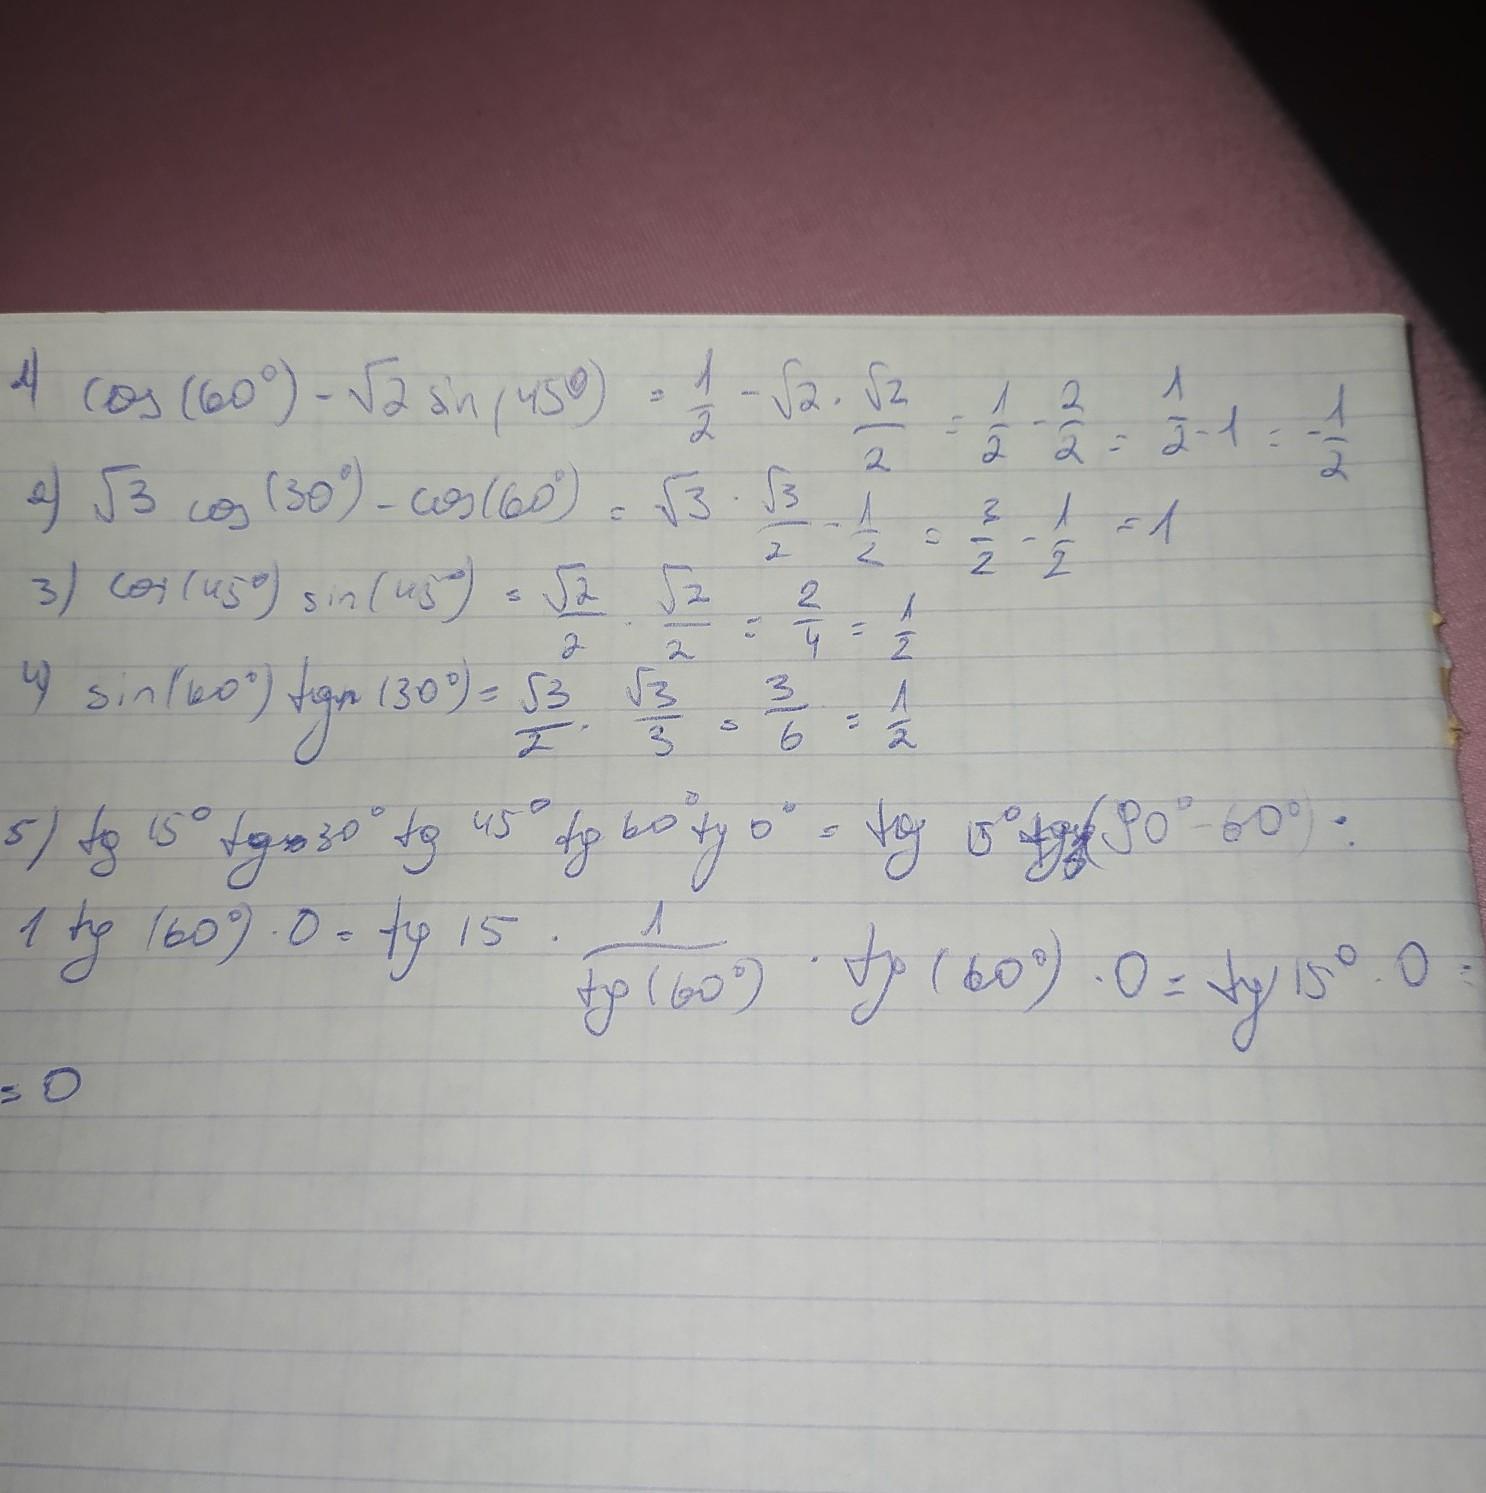 1) cos(60°) - √2 sin(45°) = 1/2 - √2 · √2/2 = 1/2 - 2/2 = 1/2 - 1 = -1/2
2) √3 cos(30°) - cos(60°) = √3 · √3/2 - 1/2 = 3/2 - 1/2 = 1
3) cos(45°) sin(45°) = √2/2 · √2/2 = 2/4 = 1/2
4) sin(60°) tg (30°) = √3/2 · √3/3 = 3/6 = 1/2
5) tg 15° tg 30° tg 45° tg 60° tg 0° = tg 15° tg (90° - 60°) ·
1 tg (60°) · 0 = tg 15 · 1/tg(60°) · tg (60°) · 0 = tg 15° · 0 =
= 0